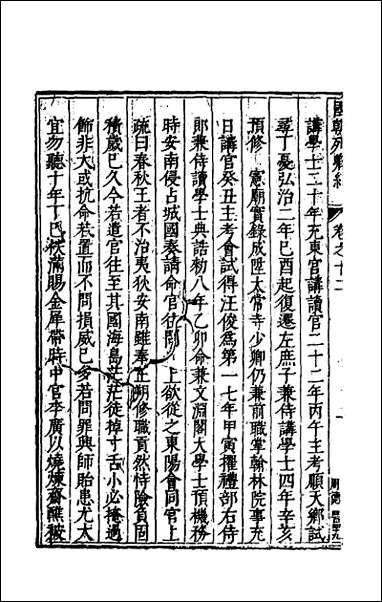 國朝列卿紀
卷之十二
講學士二十年充東宮講讀官二十二年丙午主考順天鄉試
尋丁憂弘治二年己酉起復遷左庶子兼侍講學士四年辛亥
預修　憲廟實錄成陞太常寺少卿仍兼前職掌翰林院事充
日講官癸丑主考會試得汪俊爲第一七年甲寅擢禮部右侍
郎兼侍讀學士典誥勑八年乙卯命兼文淵閣大學士預機務
時安南侵占城國奏請命官往　上欲從之東陽會同官上
疏曰春秋王者不治夷狄安南雖奉正朔修職貢然恃險負固
積歲已久今若遣官往至其國海島茫茫徒掉寸舌小必掩過
飾非大或抗命若置而不問損威已多若問罪興師貽患尤大
宜勿聽十年丁巳秩滿賜金犀帶時中官李廣以燒煉齋醮被